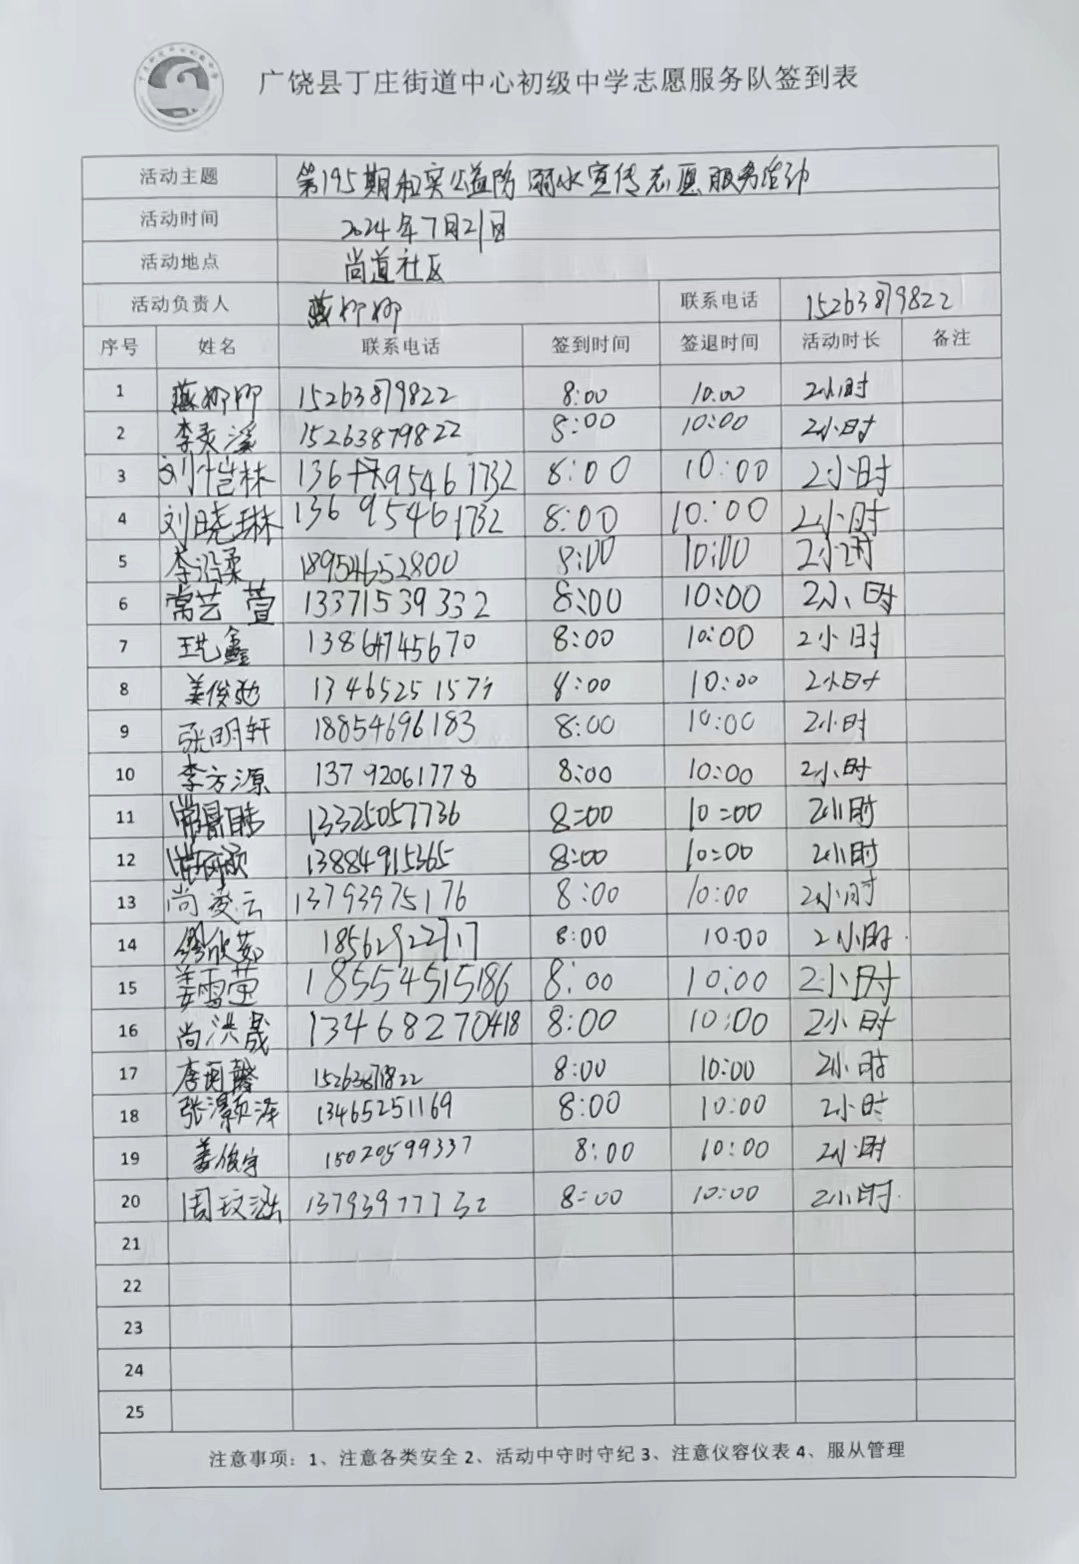 广饶县丁庄街道中心初级中学志愿服务队签到表
活动主题 第195期和奕公益防溺水宣传志愿服务活动
活动时间 2024年7月21日
活动地点 尚道社区
活动负责人 燕柳柳 联系电话 15263879822
序号 姓名 联系电话 签到时间 签退时间 活动时长 备注
1 燕柳柳 15263879822 8:00 10:00 2小时
2 李灵溪 15263879822 8:00 10:00 2小时
3 刘恺林 13695461732 8:00 10:00 2小时
4 刘晓琳 13695461732 8:00 10:00 2小时
5 李沿柔 18954652800 8:00 10:00 2小时
6 常艺萱 13371539332 8:00 10:00 2小时
7 王艺鑫 13864745670 8:00 10:00 2小时
8 姜俊驰 8:00 10:00 2小时
9 张明轩 18854696183 8:00 10:00 2小时
10 李方源 13792061778 8:00 10:00 2小时
11 13325057736 8:00 10:00 2小时
12 13884915365 8:00 10:00 2小时
13 尚凌云 13793975176 8:00 10:00 2小时
14 欣茹 8:00 10:00 2小时
15 姜雪萤 18554515186 8:00 10:00 2小时
16 尚洪晟 13468270418 8:00 10:00 2小时
17 李雨馨 15263879822 8:00 10:00 2小时
18 张灏泽 13465251169 8:00 10:00 2小时
19 姜俊宇 15020599337 8:00 10:00 2小时
20 周玟涵 13793977732 8:00 10:00 2小时
21
22
23
24
25
注意事项：1、注意各类安全 2、活动中守时守纪 3、注意仪容仪表 4、服从管理